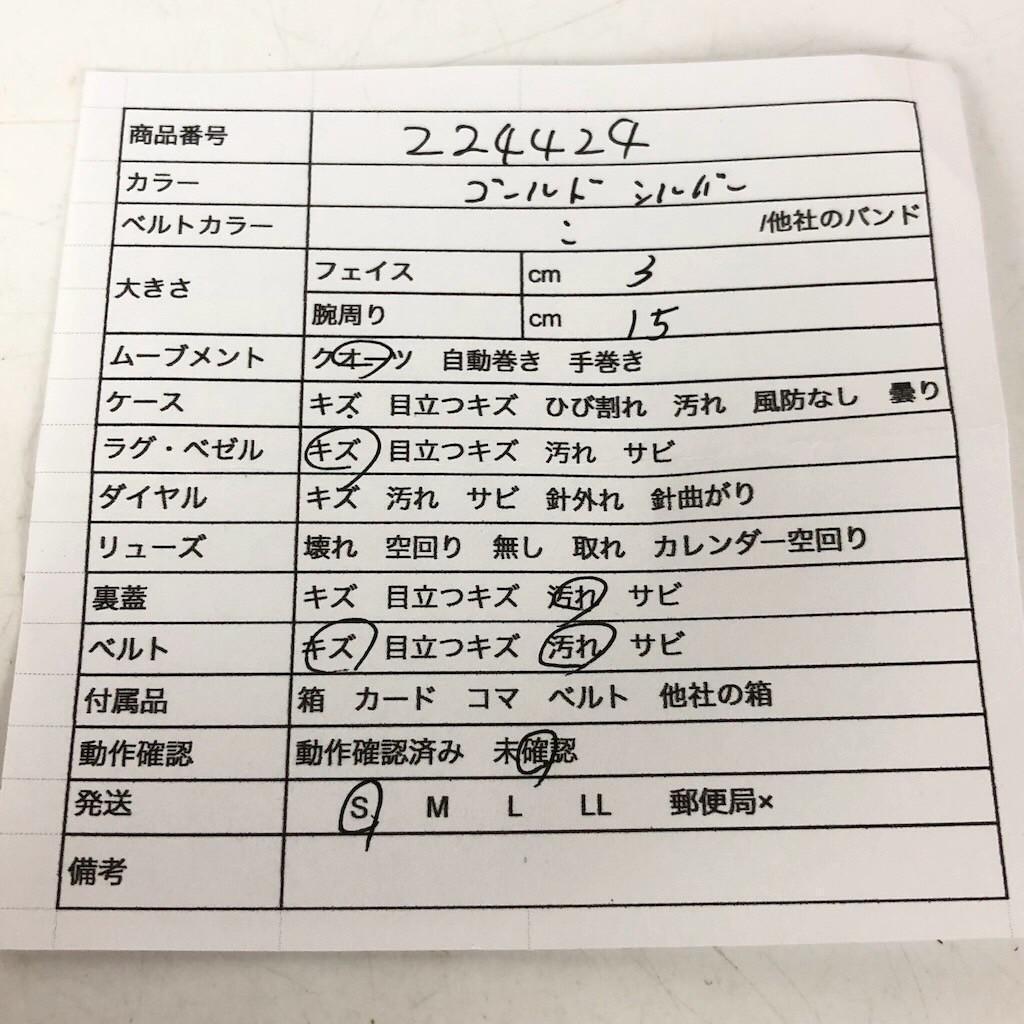 商品番号 224424
カラー ゴールド シルバー
ベルトカラー 〃 /他社のバンド
大きさ フェイス cm 3
腕周り cm 15
ムーブメント クオーツ 自動巻き 手巻き
ケース キズ 目立つキズ ひび割れ 汚れ 風防なし 曇り
ラグ・ベゼル キズ 目立つキズ 汚れ サビ
ダイヤル キズ 汚れ サビ 針外れ 針曲がり
リューズ 壊れ 空回り 無し 取れ カレンダー空回り
裏蓋 キズ 目立つキズ 汚れ サビ
ベルト キズ 目立つキズ 汚れ サビ
付属品 箱 カード コマ ベルト 他社の箱
動作確認 動作確認済み 未確認
発送 S M L LL 郵便局×
備考